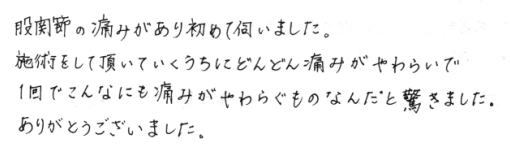 股関節の痛みがあり初めて伺いました。
施術をして頂いていくうちにどんどん痛みがやわらいで
1回でこんなにも痛みがやわらぐものなんだと驚きました。
ありがとうございました。